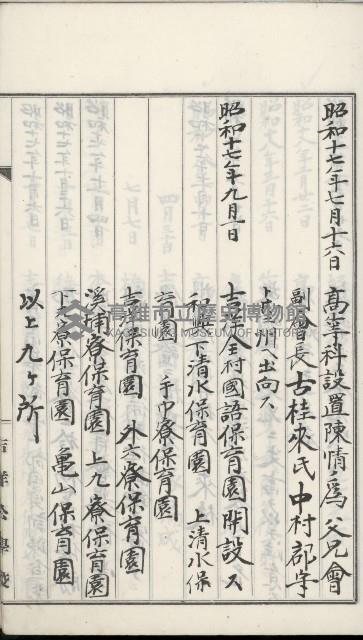 昭和十七年七月十六日　高等科設置陳情ノ為父兄會
副會長古桂來氏中村郡守
上州ヘ出向ス
昭和十七年九月一日　吉洋全村國語保育園開設ス
和興下清水保育園　上清水保
育園　手巾寮保育園
吉洋保育園　外六寮保育園
溪埔寮保育園　上九寮保育園
下寮保育園　亀山保育園
以上九ケ所
高雄市立歷史博物館
KAOHSIUNG MUSEUM OF HISTORY